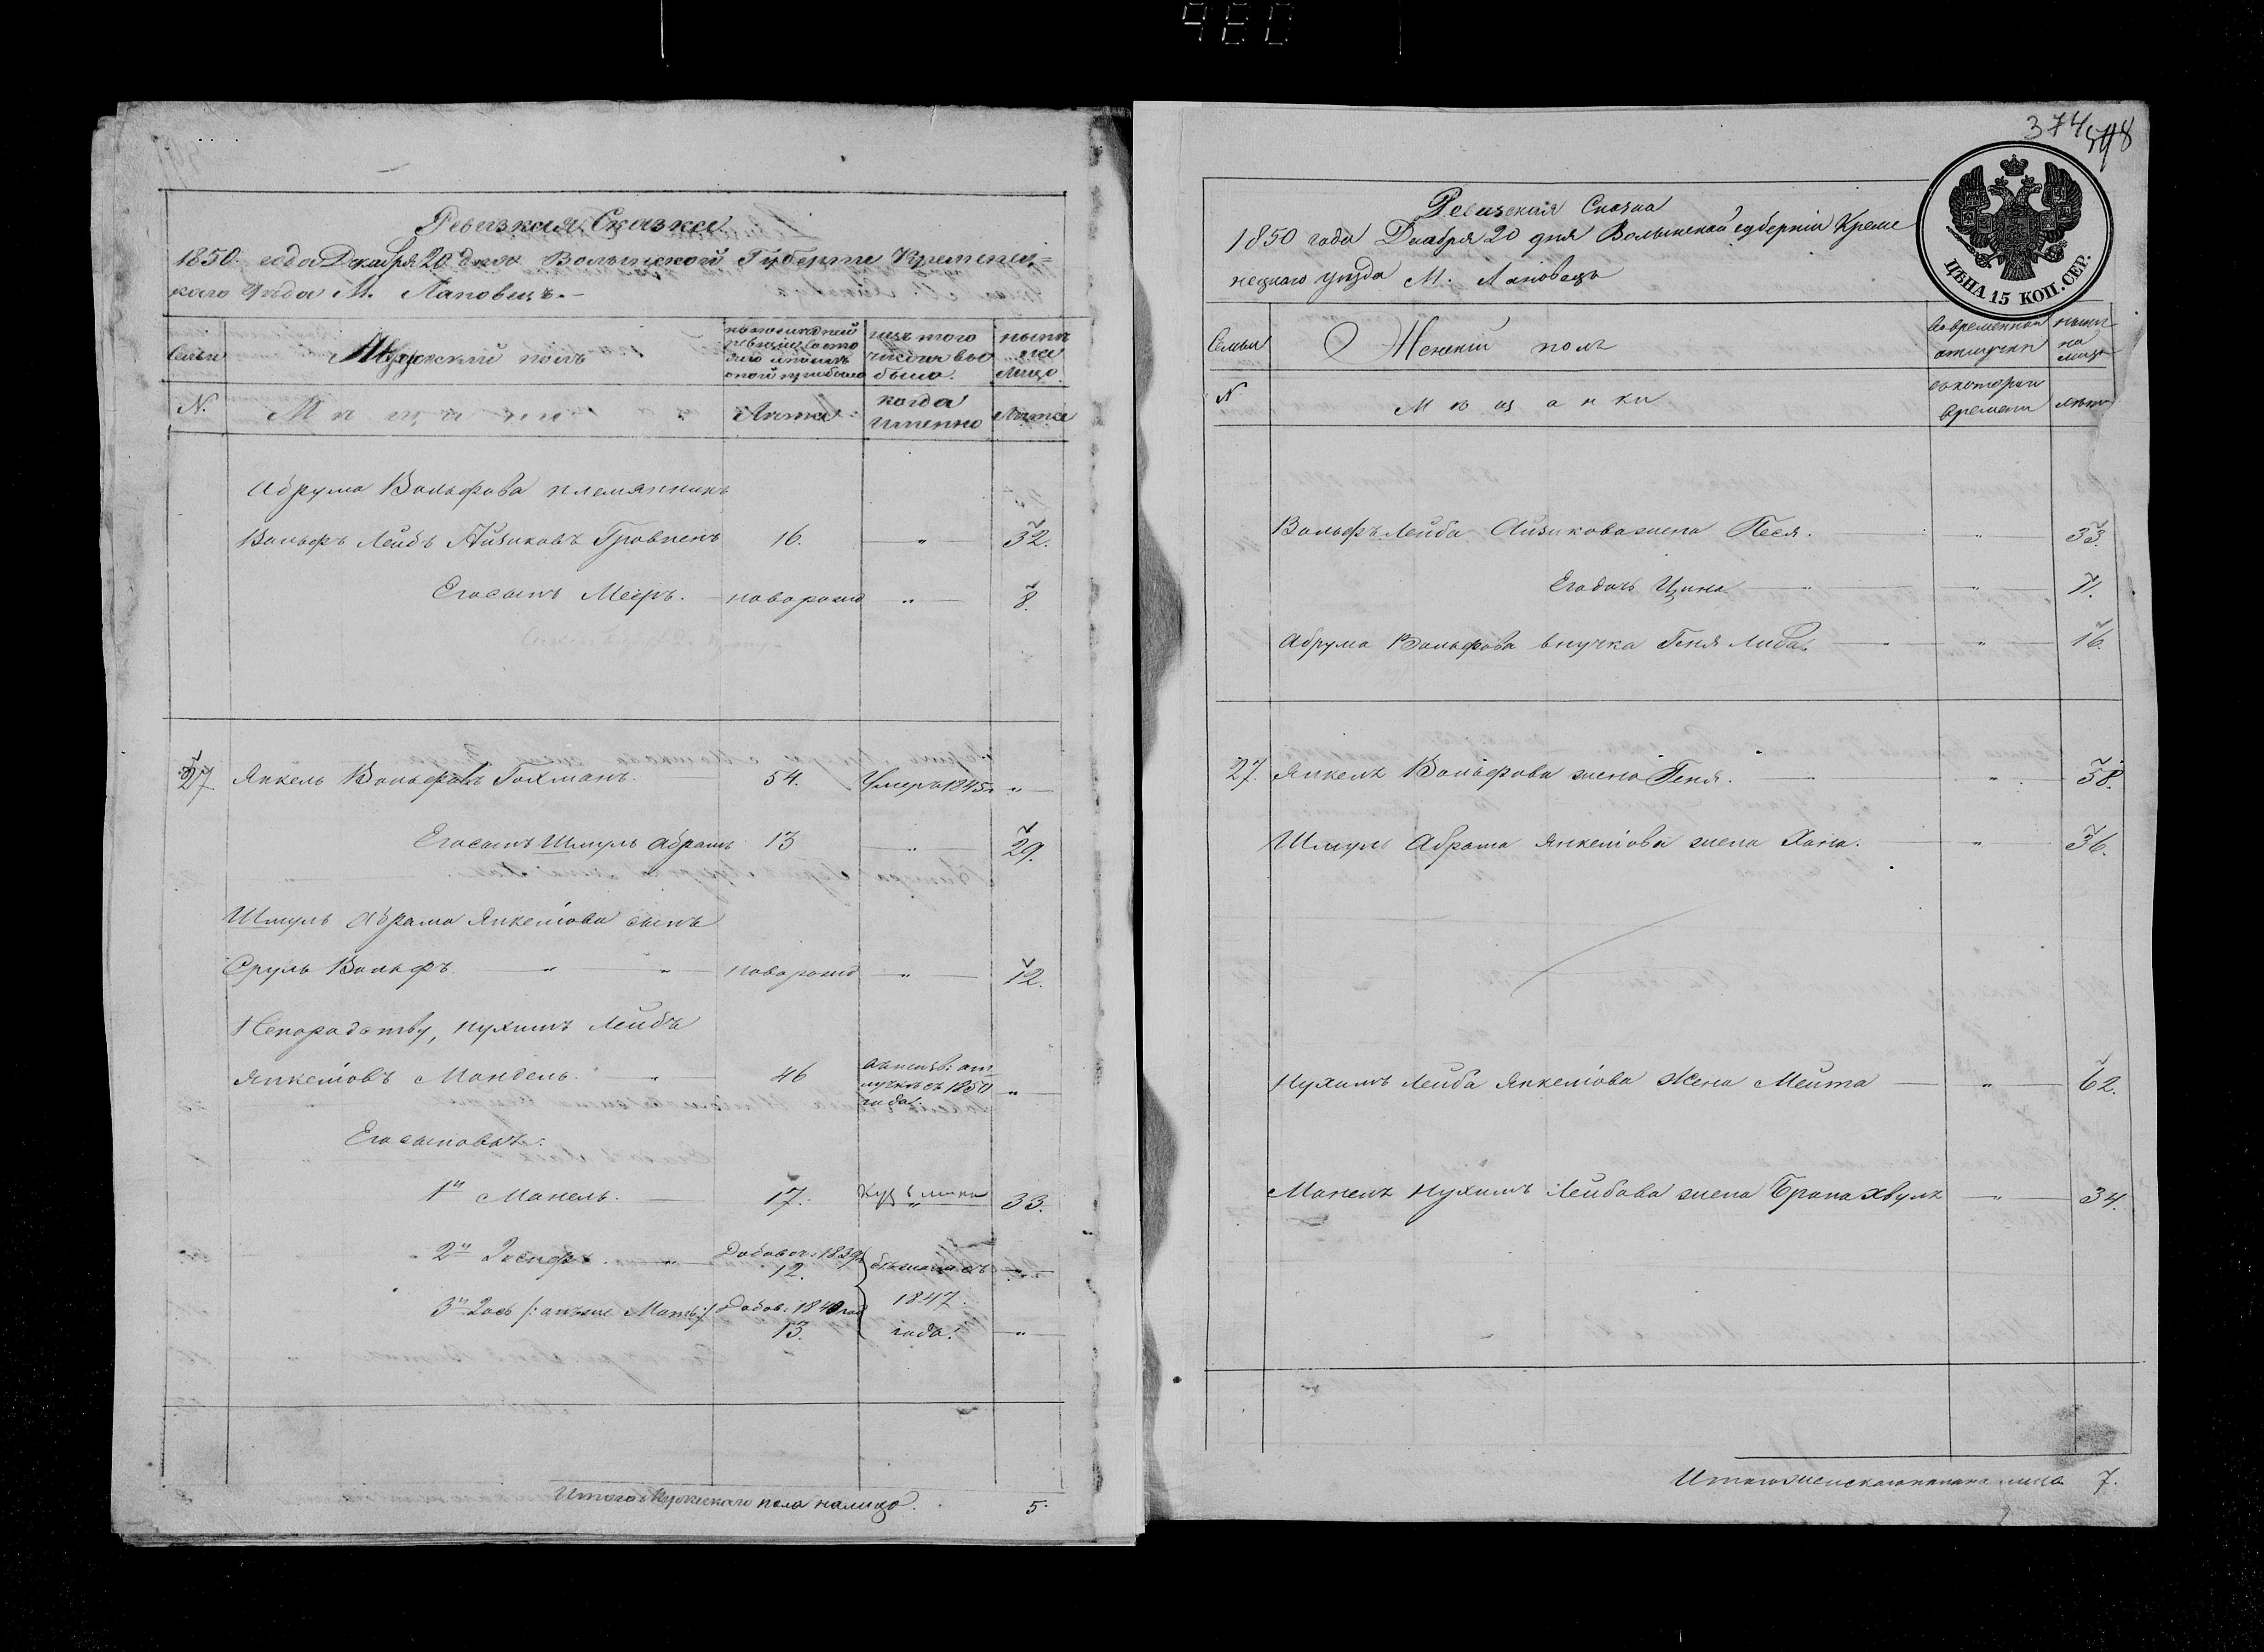 480
Ревизкая Сказка
1850 года Декабря 20 дня Волынской Губернии Кременец=
каго Уезда М. Лановец.
Семьи
Мужеский пол
по последней
ревизии состо
яло и после
оной прибыло
из того
числа вы
было.
ныне
на
лицо.
N.
Мещане
Лета
когда
именно
Лета
Абрума Вольфова племянник
Вольф Лейб Айзиков 16. " 32.
Его сын Меер. новорожд " 8.
27 Янкель Вольфов Гохман. 54. Умер 1845 г "
Его сын Шмуль Абрам 13 " 29.
Шмуль Абрама Янкелева сын
Сруль Вольф " " новорожд " 12.
Не по родству, Нухим Лейб
Янкелёв Мандель. " 46
1850
года.
"
Его сыновья:
1й Манель. 17. " 33.
2й Иосиф. " Добавоч: 1839
12.
"
3й Иось /: он же Мать:/ Добов: 1840 год
13.
1847
года.
"
Итого Мужеского пола налицо. 5.
374
ЦѢНА 15 КОП. СЕР.
Ревизская Сказка
1850 года Декабря 20 дня Волынской губернии Креме
нецкаго уезда М. Лановец
Семьи
Женский пол
Во временной
отлучке
ныне
на
лицо
N
Мещанки
с которого
времени
лета
Вольф Лейба Айзикова жена Песя. " 33.
Его дочь Ципа " " 11.
Абрума Вольфова внучка Геня Либа. " 16.
27. Янкеля Вольфова жена Геня. " 58.
Шмуля Абрама Янкелёва жена Хана. " 36.
Нухима Лейба Янкелёва жена Мейта " 62.
Манеля Нухим Лейбова жена " 34.
Итого женского пола на лицо 7.